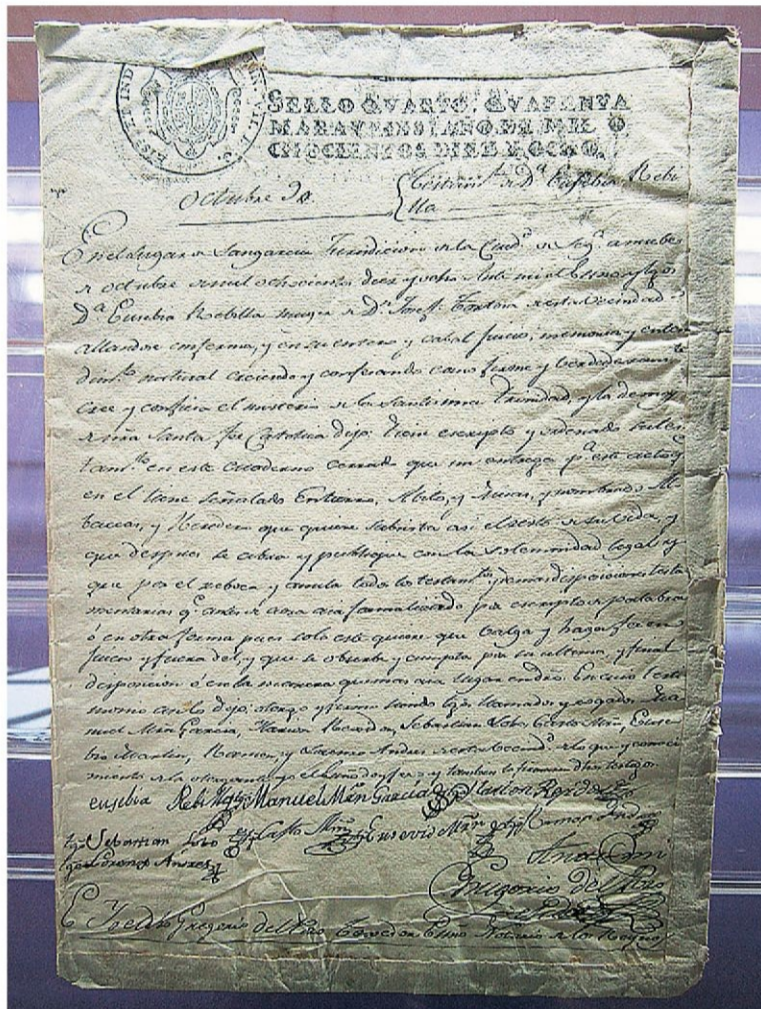 SELLO QVARTO, QVARENTA
MARAVEDIS, AÑO DE MIL O
CHOCIENTOS DIEZ Y OCHO.
Octubre 9
Testam.to de D.a Eusebia Rebi
lla
En el Lugar de Sangarcia Jurisdicion de la Ciud.d de Seg.a a nuebe
de octubre de mil ochocientos diez y ocho Ante mi el Es.no y tgos
D.a Eusebia Rebilla muger de D.n Josef de esta Vecindad
allandose enferma, y en su entero y cabal juicio, memoria y enten
dim.to natural creiendo y confesando como firme y berdaderam.te
cree y confiesa el misterio de la Santisima Trinidad, y lo demas
de nra Santa fee Catolica dijo: tiene escripto y ordenado su tes
tam.to en este cuaderno cerrado que me entrega p.a este acto q.
en el tiene señalado Entierro, Abito, y Misas, y nombrado Al
baceas, y Heredero que quiere subsista asi el resto de su vida, y
que despues se abra y publique con la solemnidad legal, y
que por el reboca y anula todos los testam.tos y demas disposiciones testa
mentarias q.e antes de aora aia formalizado por escripto, de palabra
ó en otra forma pues solo este quiere que balga y haga fee en
juicio y fuera del, y que se observe y cumpla por su ultima, y final
disposicion ó en la manera que mas aia lugar en dro. En cuio testi
monio asi lo dijo, otorgo y firmo siendo tgos. llamados y rogados Ma
nuel Mrn Garcia, Sebastian Lobo, Casto Mrn, Euse
bio Martin, Ramon, y Lorenzo Andres de esta Vecind.d de lo que y conoci
miento de la otorgante yo el Es.no doy fee y tambien lo firmaron dhos testigos
eusebia Rebilla tgo Manuel Mrn Garcia
tgo Sebastian Lobo tgo Casto Mrn tgo Eusevio Mrn tgo Ramon Andres
tgo Lorenzo Andres
Ante mi
Gregorio del Pozo
Gregorio del Pozo Es.no Notario de los Reynos